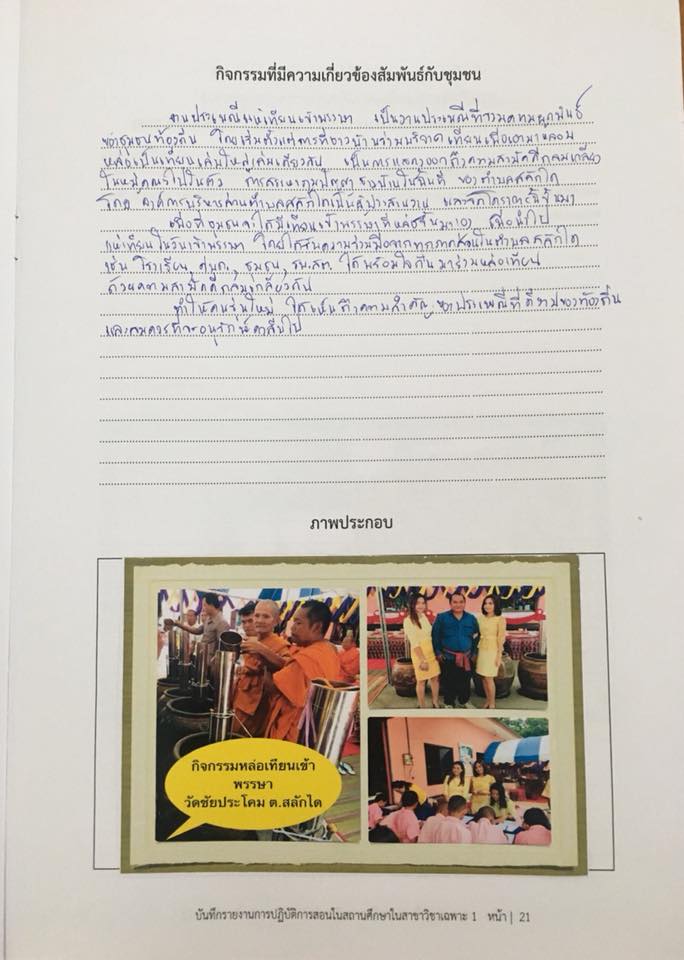 กิจกรรมที่มีความเกี่ยวข้องสัมพันธ์กับชุมชน
งานประเพณีแห่เทียนเข้าพรรษา เป็นงานประเพณีที่รวมความผูกพันธ์
ของชุมชนท้องถิ่น โดยเริ่มตั้งแต่การที่ชาวบ้านร่วมบริจาคเทียนเพื่อเอามาหลอม
หล่อเป็นเทียนเล่มใหญ่เล่มเดียวกัน เป็นการแสดงออกถึงความสามัคคีกลมเกลียว
ในหมู่คณะไปในตัว การสรรหาภูมิปัญญาชาวบ้านในพื้นที่ ของตำบลสลักได
โดย องค์การบริหารส่วนตำบลสลักไดเป็นผู้ประสานงาน และจัดโครงการนี้ขึ้นมา
เพื่อที่ชุมชนจะได้มีเทียนเข้าพรรษาที่หล่อขึ้นมาเอง เพื่อนำไป
แห่เทียนในวันเข้าพรรษา โดยได้รับความร่วมมือจากทุกภาคส่วนในตำบลสลักได
เช่น โรงเรียน, ศูนย์, ชุมชน, รพ.สต. ได้พร้อมใจกันมาร่วมหล่อเทียน
ด้วยความสามัคคีกลมเกลียวกัน
ทำให้คนรุ่นใหม่ ได้เห็นถึงความสำคัญ ของประเพณีที่ดีงามของท้องถิ่น
และสมควรที่จะอนุรักษ์ไป
ภาพประกอบ
กิจกรรมหล่อเทียนเข้า
พรรษา
วัดชัยประโคม ต.สลักได
บันทึกรายงานการปฏิบัติการสอนในสถานศึกษาในสาขาวิชาเฉพาะ 1 หน้า | 21